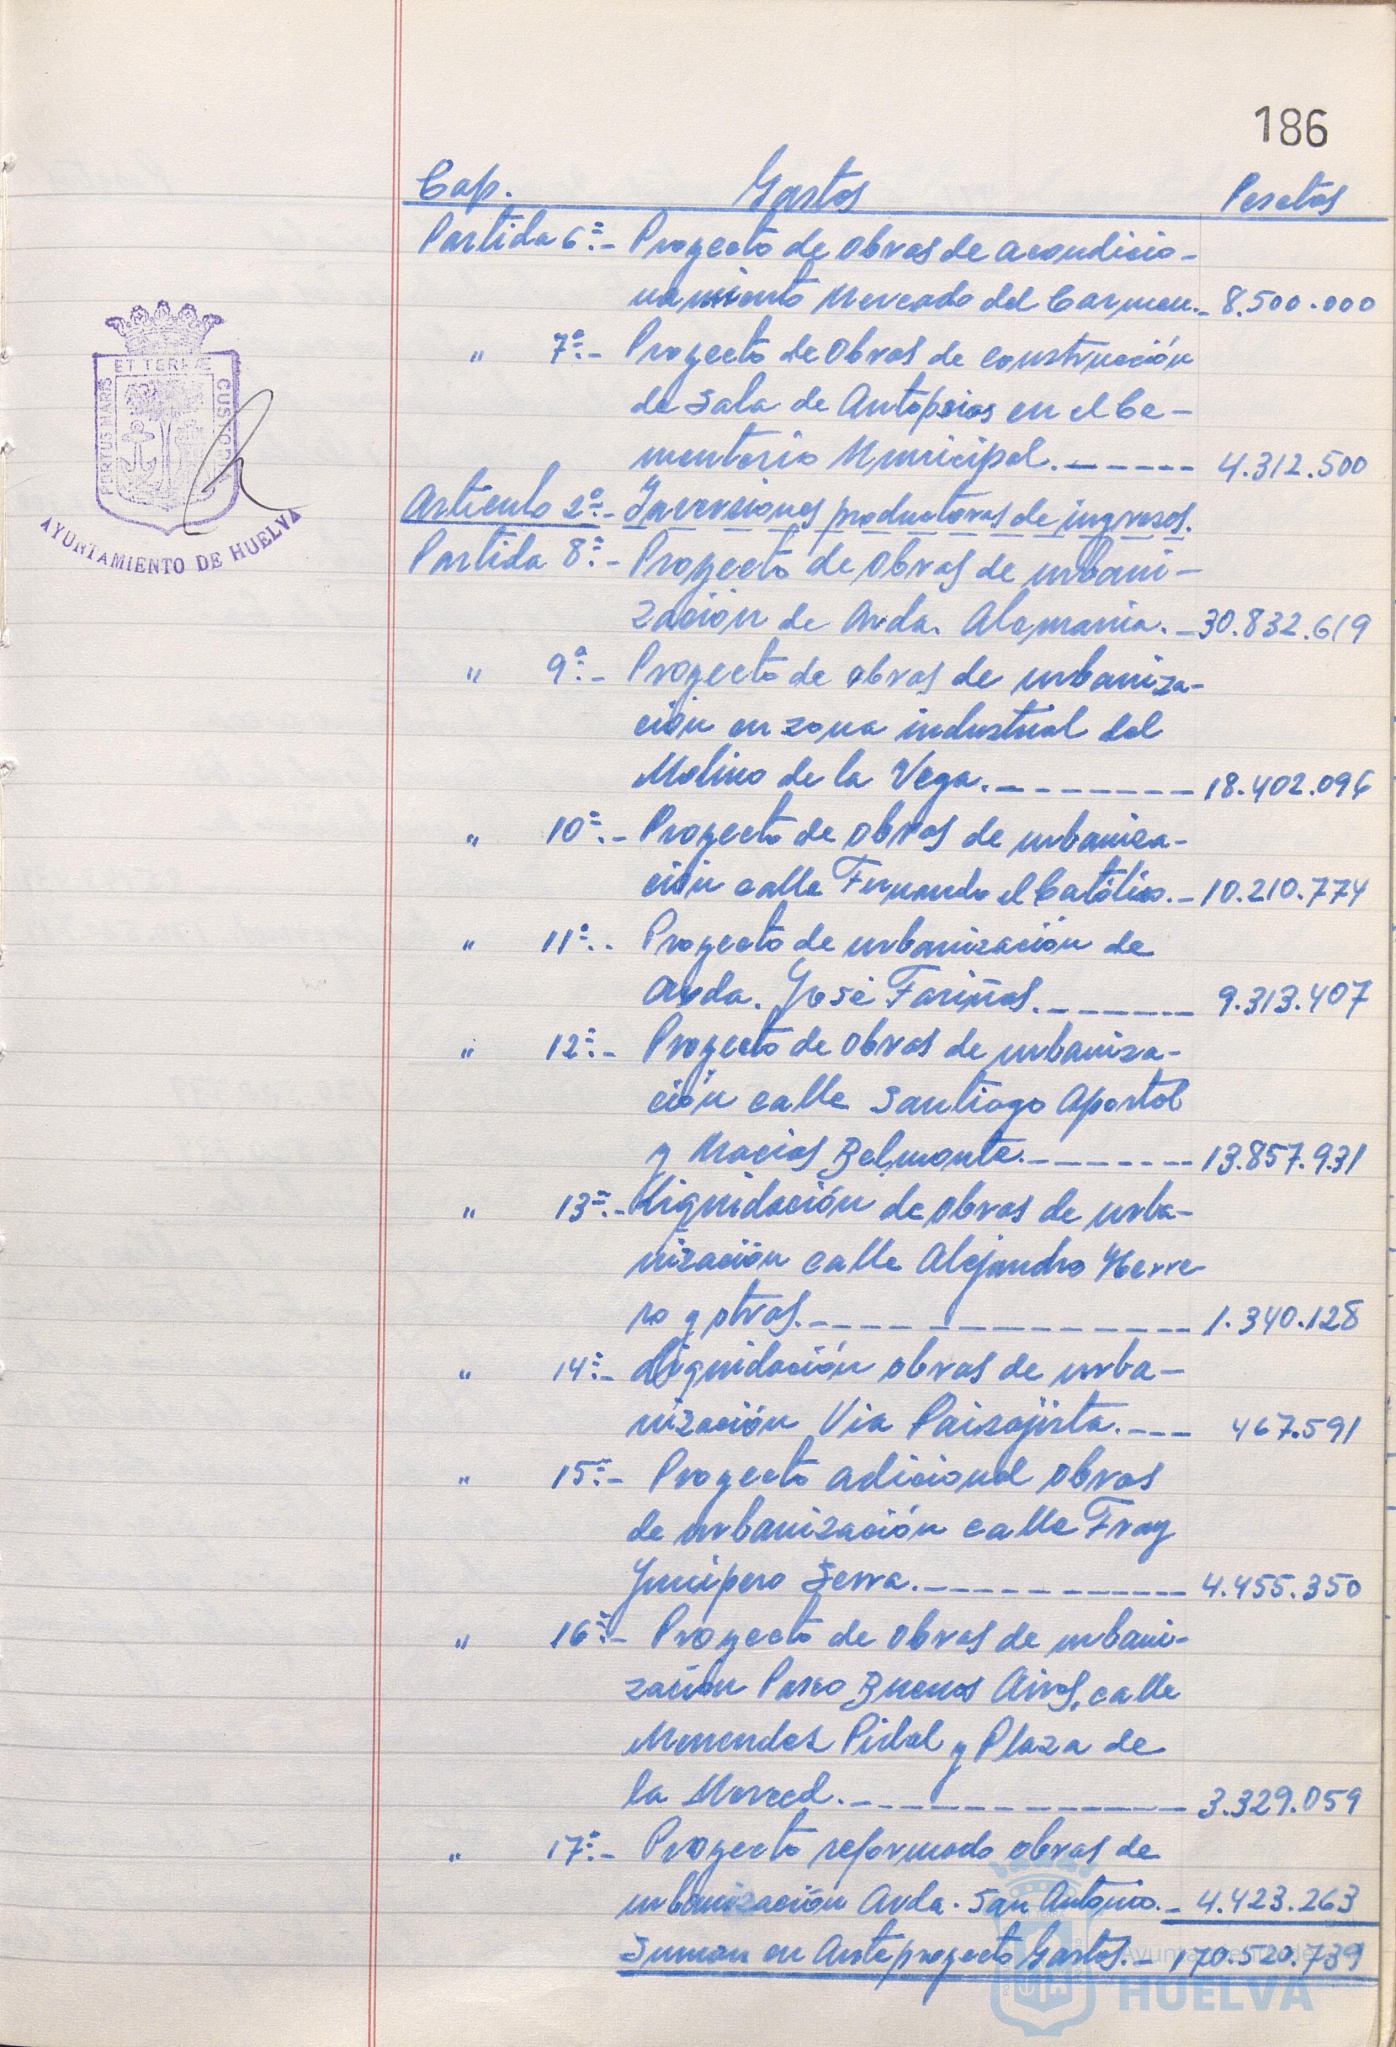 186
Cap. Gastos Pesetas
Partida 6ª.- Proyecto de obras de acondicio-
namiento Mercado del Carmen.- 8.500.000
" 7ª.- Proyecto de obras de construcción
de Sala de Autopsias en el Ce-
menterio Municipal.------ 4.312.500
Artículo 2º.- Inversiones productoras de ingresos.
Partida 8ª.- Proyecto de obras de urbani-
zación de Avda. Alemania.- 30.832.619
" 9ª.- Proyecto de obras de urbaniza-
ción en zona industrial del
Molino de la Vega.-------- 18.402.096
" 10ª.- Proyecto de obras de urbaniza-
ción calle Fernando el Católico.- 10.210.774
" 11ª.. Proyecto de urbanización de
Avda. José Fariñas.------- 9.313.407
" 12ª.- Proyecto de obras de urbaniza-
ción calle Santiago Apostol
y Macias Belmonte.-------- 13.857.931
" 13ª.- Liquidación de obras de urba-
nización calle Alejandro Herre
ro y otras.--------------- 1.340.128
" 14ª.- Liquidación obras de urba-
nización Via Paisajista.--- 467.591
" 15ª.- Proyecto adicional obras
de urbanización calle Fray
Junipero Serra.----------- 4.455.350
" 16ª.- Proyecto de obras de urbani-
zación Paseo Buenos Aires, calle
Menendez Pidal y Plaza de
la Merced.--------------- 3.329.059
" 17ª.- Proyecto reformado obras de
urbanización Avda. San Antonio.- 4.423.263
Suman en Anteproyecto Gastos.- 170.520.739
PORTUS MARIS
ET TERRÆ
CUSTODIA
AYUNTAMIENTO DE HUELVA
Ayuntamiento de
HUELVA